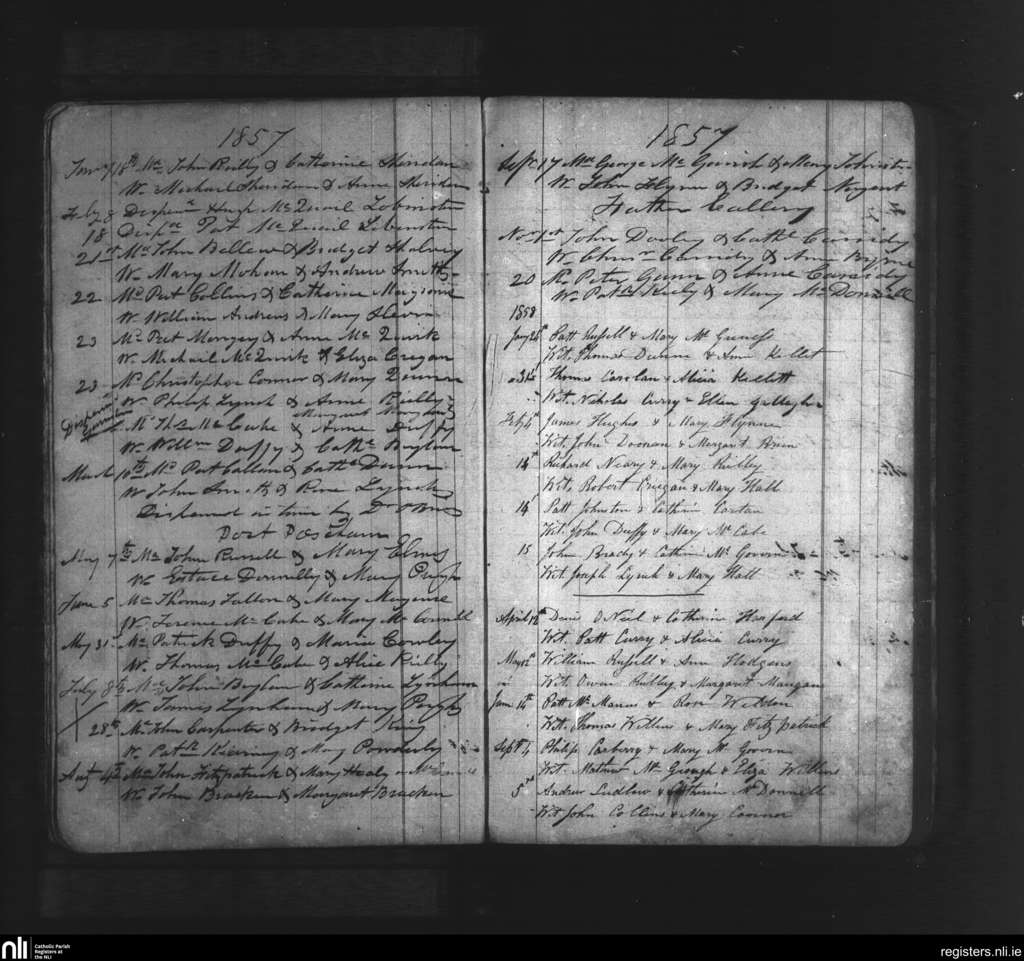 1857
Jany 18th Md. John Reilly & Catherine Sheridan
W. Michael Sheridan & Anne Sheridan
Feby 8 Hugh McQuail
18 Pat McQuail
21st Md. John Bellew & Bridget
W. Mary Mohan & Andrew Smith
22 Md. Pat Collins & Catherine
W. William Andrews & Mary
23 Md. Pat & Anne McQuirk
W. Michail McQuirk & Eliza Cregan
23 Md. Christopher Connor & Mary
W. Philip Lynch & Anne Reilly
Margaret
Md. McCabe & Anne Duffy
W. Willm Duffy & Cathe Boylan
March 10th Md. Pat Callan & Cathe Dunn
W. John Smith & Rose Lynch
Dispensed in time by Dr.
Post Pascham
May 7th Md. John Russell & Mary
W. Eustace Donnelly & Mary Pugh
June 5 Md. Thomas Fallon & Mary Maguire
W. Terence McCabe & Mary
May 31st Md. Patrick Duffy & Maria Cowley
W. Thomas McCabe & Alice Reilly
July 8th Md. John Boylan & Catherine Lynham
W. James Lynham & Mary Pugh
28th Md. John Carpenter & Bridget King
W. Patck & Mary Powderly
Aust 4th Md. John Fitzpatrick & Mary Healy
W. John Bracken & Margaret Bracken
1857
Sepr. 17 Md. George McGovrich & Mary Johnston
W. John Flynn & Bridget Nugent
Father Callery
Novr 1st John Dooley & Cathe Cassidy
W. Cassidy & Ann Byrne
20 M. Peter Gunn & Anne Cassidy
W. Patck Kirby & Mary McDonnell
1858
Jany 24th Patt Russell & Mary McGuness
Wit. Thomas Dunne & Ann Kellet
31st Thomas Carolan & Alicia Kellett
Wit. Nicholas Curry & Ellen Gallagher
Feby 4th James Hughes & Mary Flynn
Wit. John Doonan & Margaret Brien
14th Richard Neary & Mary Reilley
Wit. Robert Creegan & Mary Hall
14 Patt Johnston & Catherin
Wit. John Duffy & Mary McCabe
15 John Brady & Catherin McGovern
Wit. Joseph Lynch & Mary Hall
April 12th Denis O Neil & Catherine
Wit. Patt Curry & Alicia Curry
May 12th William Russell & Ann Hodgens
Wit. Owen Reilley & Margaret Mangan
June 14th Patt McManus & Rose Weldon
Wit. Thomas & Mary Fitzpatrick
Sept 4 Philip Carberry & Mary McGovern
Wit. Mathew McGeough & Eliza
5th Andrew Ludlow & Catherin McDonnell
Wit John Collins & Mary Connor
nli
Catholic Parish
Registers at
the NLI
registers.nli.ie